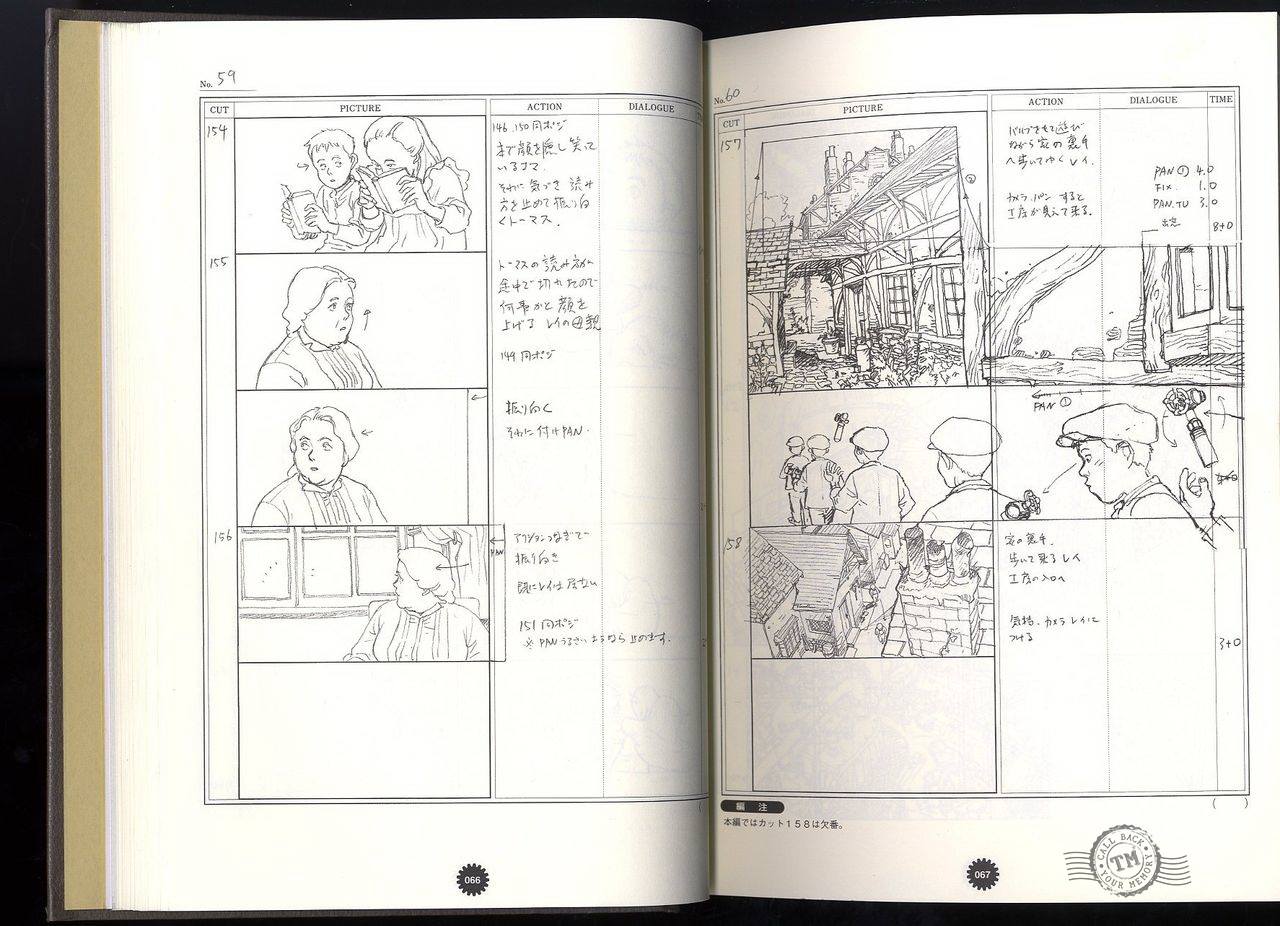 No. 59
CUT PICTURE ACTION DIALOGUE
154
146, 150 同ポジ
本で顔を隠し笑って
いるエマ.
それに気づき 読み
方を止めて振り向
くトーマス.
155
トーマスの読み方が
途中で切れたので
何事かと 顔を
上げる レイの母親
149 同ポジ
振り向く
それに付けPAN.
156
PAN
アクションつなぎで
振り向き
既にレイは居ない
151 同ポジ
※ PAN うるさいようなら 止めます.
066
No. 60
CUT PICTURE ACTION DIALOGUE TIME
157
バルブをもて遊び
ながら 家の裏手
へ歩いてゆくレイ.
カメラ.パンすると
工房が見えて来る.
PAN① 4.0
FIX. 1.0
PAN.TU 3.0
8+0
②
PAN ①
158
家の裏手.
歩いて来るレイ
工房の入口へ
気持、カメラ レイに
つける
3+0
( )
編 注
本編ではカット158は欠番。
067
CALL BACK
TM
YOUR MEMORY